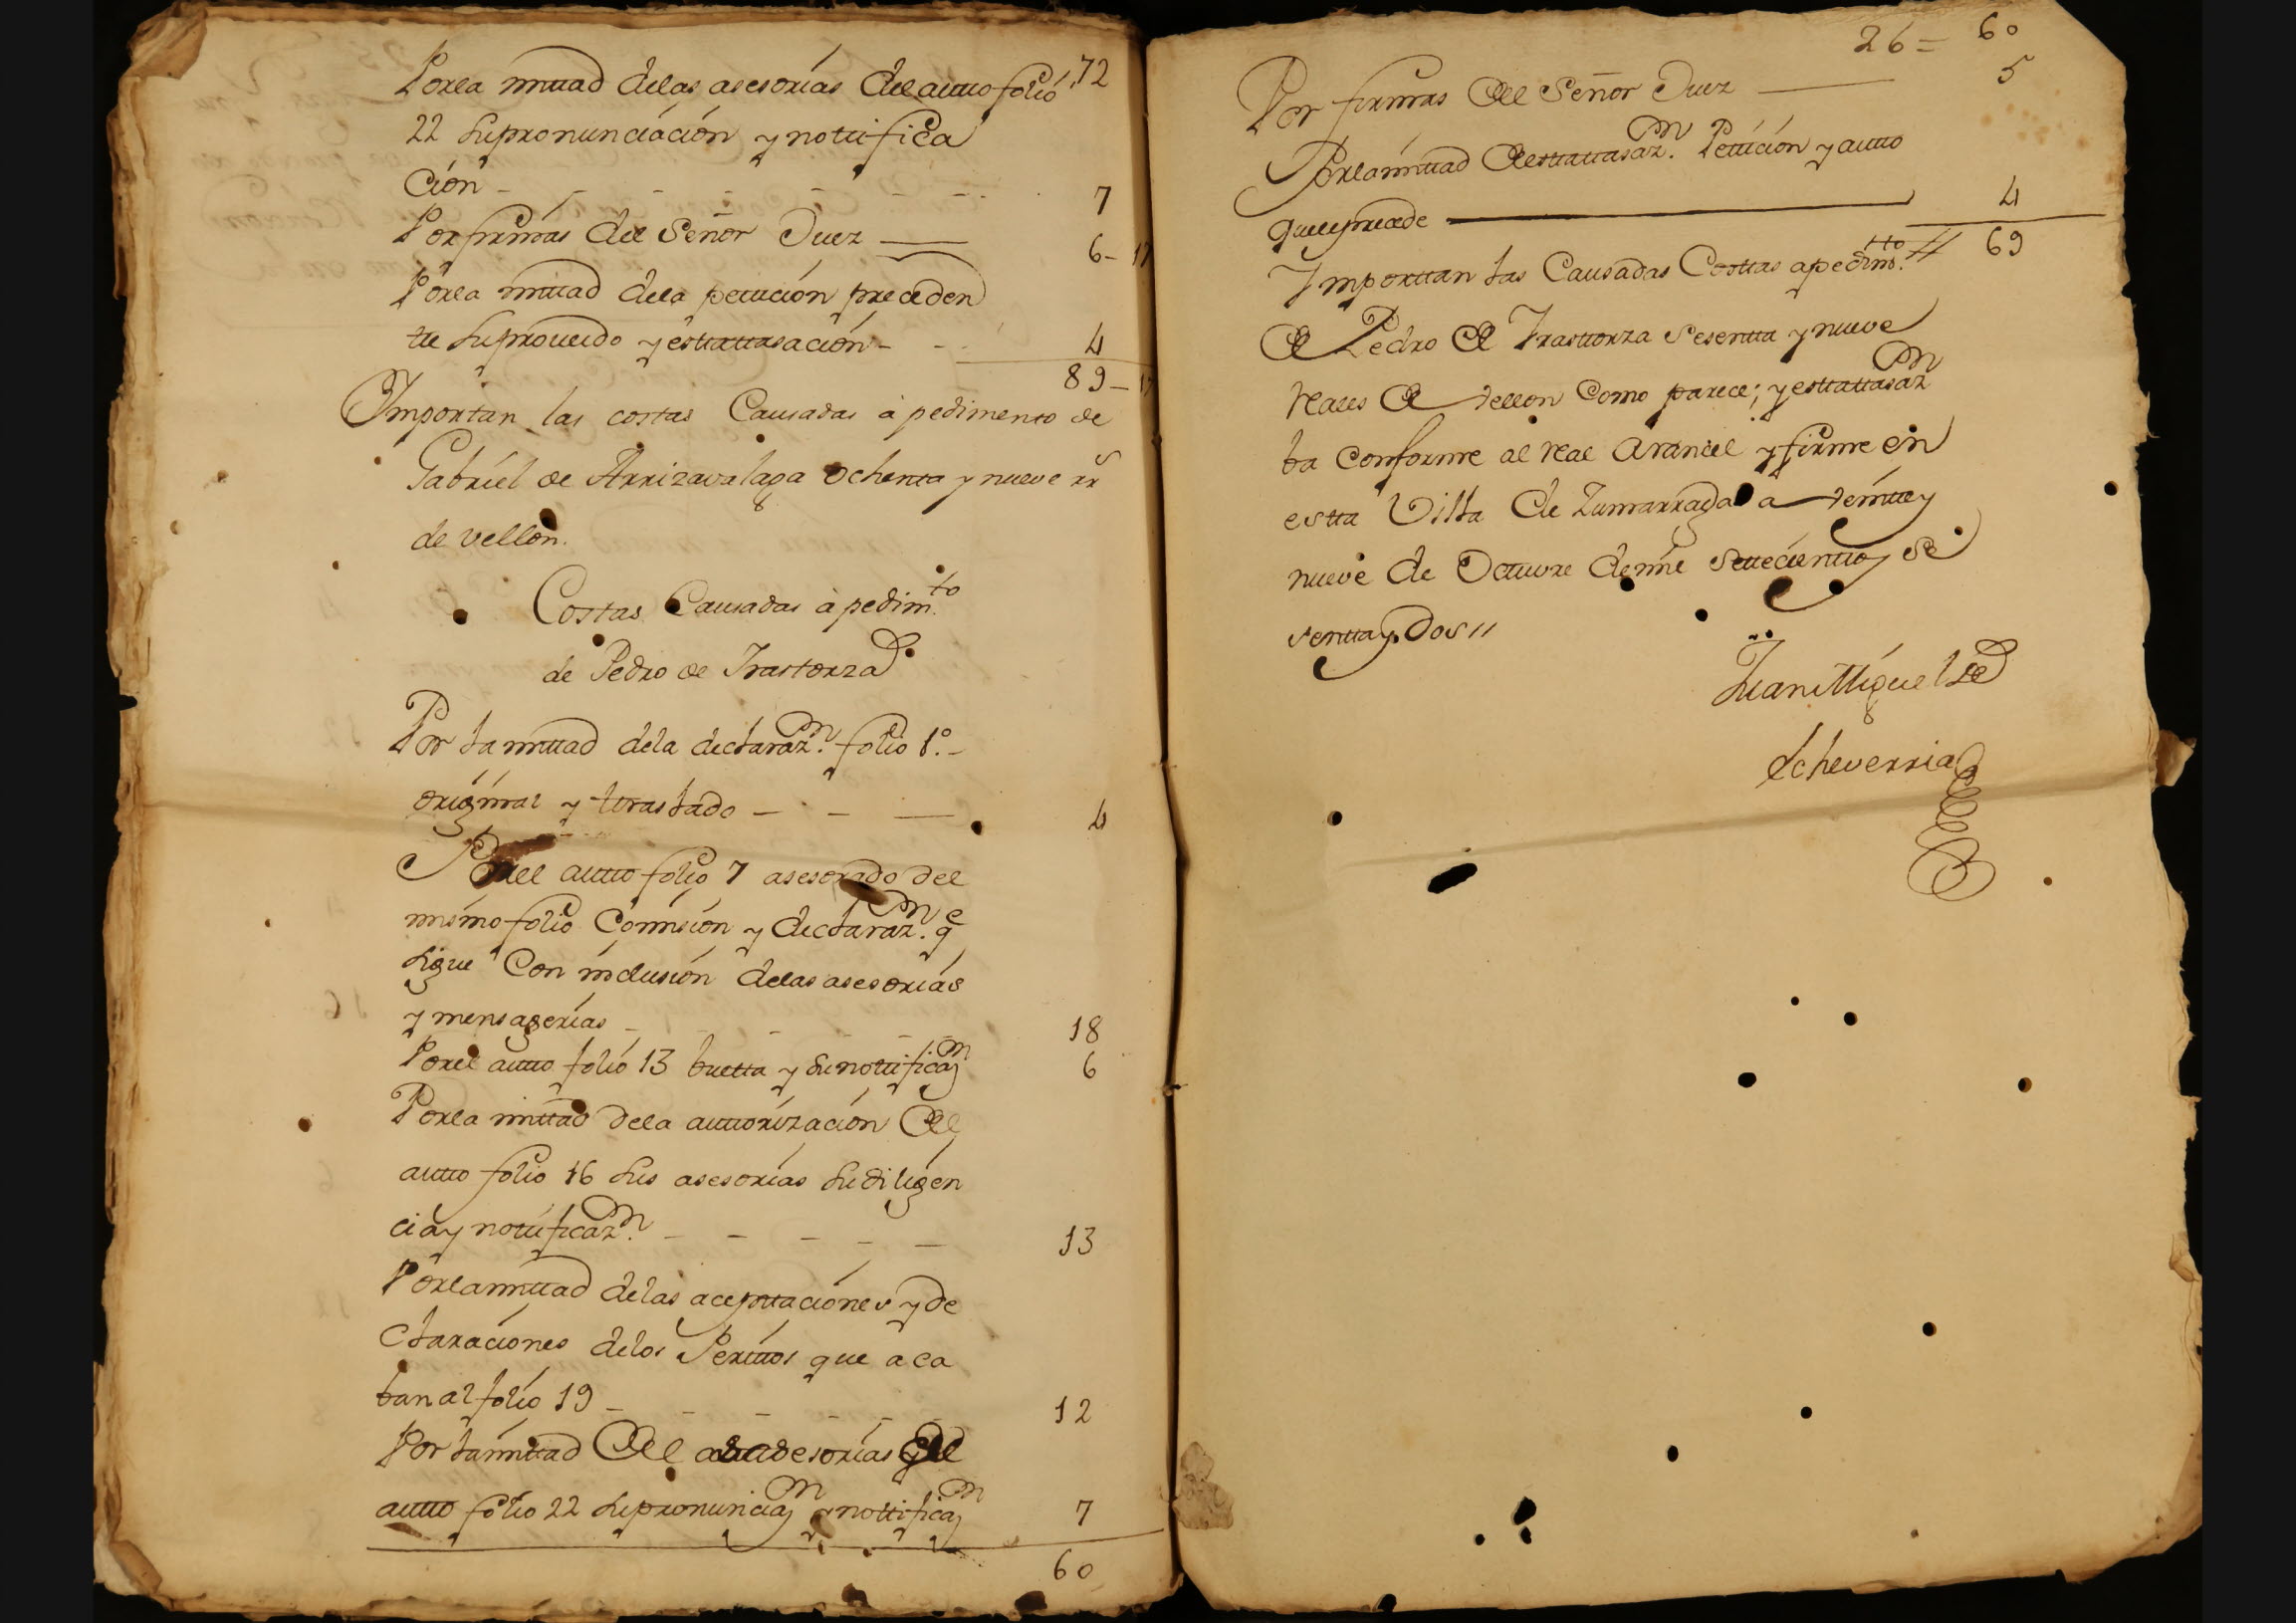 72
Por la mittad de las asesorías del autto folio
22 su pronunciación y nottifica
ción - - - - - - 7
Por firmas del Señor Juez — 6-17
Por la mittad de la petición preceden
tte su proveido y esttattasación - - 4
89-17
Importan las costas Causadas à pedimento de
Gabriel de Arrizavalaga ochenta y nueve rrs
de vellon.
Costas Causadas à pedim.to
de Pedro de Irastorza
Por la mittad de la declaraz.n folio 1.º -
original y ttraslado - - — 4
Por el autto folio 7 asesorado del
mismo folio Comision y declaraz.n qe
sigue Con inclusión de las asesorías
y mensagerías - - - - - 18
Por el autto folio 13 buelta y su nottificaz.n 6
Por la mittad de la auttorización del
autto folio 16 sus asesorías su diligen
cia y nottificaz.n - - - - - 13
Por la mittad de las acepttaciones y de
claraciones de los Perittos que aca
ban al folio 19 - - - - - - 12
Por la mittad del asesorías del
autto folio 22 su pronunciaz.n y nottificaz.n 7
60
26= 60
Por firmas del Señor Juez — 5
Por la mittad de esttattasaz.n Petición y autto
que le precede — 4
69
Importtan las Causadas Costtas a pedim.tto
de Pedro de Irasttorza Sesentta y nueve
reales de vellon Como parece; y esttattasaz.n
ba Conforme al real arancel y firme en
estta Villa de Zumarraga a veintte y
nueve de Octtuvre de mil settecienttos se
senttay Dos //
Juan Miguel de
Echeverria